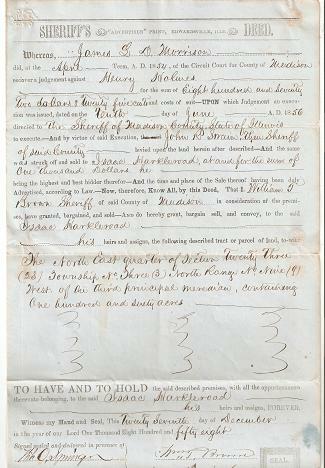 SHERIFF'S "ADVERTISER" PRINT, EDWARDSVILLE, ILLS. DEED.
Whereas, James L. D. Morrison
did, at the April Term, A. D. 1854, of the Circuit Court for County of Madison
recover a judgement against Henry Holmes
for the sum of Eight hundred and Seventy
two dollars & twenty five cents costs of suit—UPON which Judgement an execution
was issued, dated on the tenth day of June A. D. 1856
directed to the Sheriff of Madison County State of Illinois
to execute—And by virtue of said Execution, John then Sheriff
of said County levied upon the land herein after described—And the same
was struck of and sold to Isaac Harkleroad, at and for the sum of
One thousand Dollars he
being the highest and best bidder therefor—And the time and place of the Sale thereof having been duly
Advertised, according to Law—Now, therefore, Know All, by this Deed, That I William T
Brown Sheriff of said County of Madison in consideration of the premises,
have granted, bargained, and sold—And do hereby grant, bargain sell, and convey, to the said
Isaac Harkleroad
his heirs and assigns, the following described tract or parcel of land, to-wit:
The North East quarter of Section Twenty Three
(23) Township No Three (3) North Range No Nine (9)
West of the third principal meridian, containing
One hundred and sixty acres
TO HAVE AND TO HOLD the said described premises, with all the appurtenances
thereunto belonging, to the said Isaac Harkleroad
his heirs and assigns, FOREVER.
Witness my Hand and Seal, This Twenty Seventh day of December
in the year of our Lord One Thousand Eight Hundred and fifty eight
Signed sealed and delivered in presence of
Springer Wm T Brown SEAL